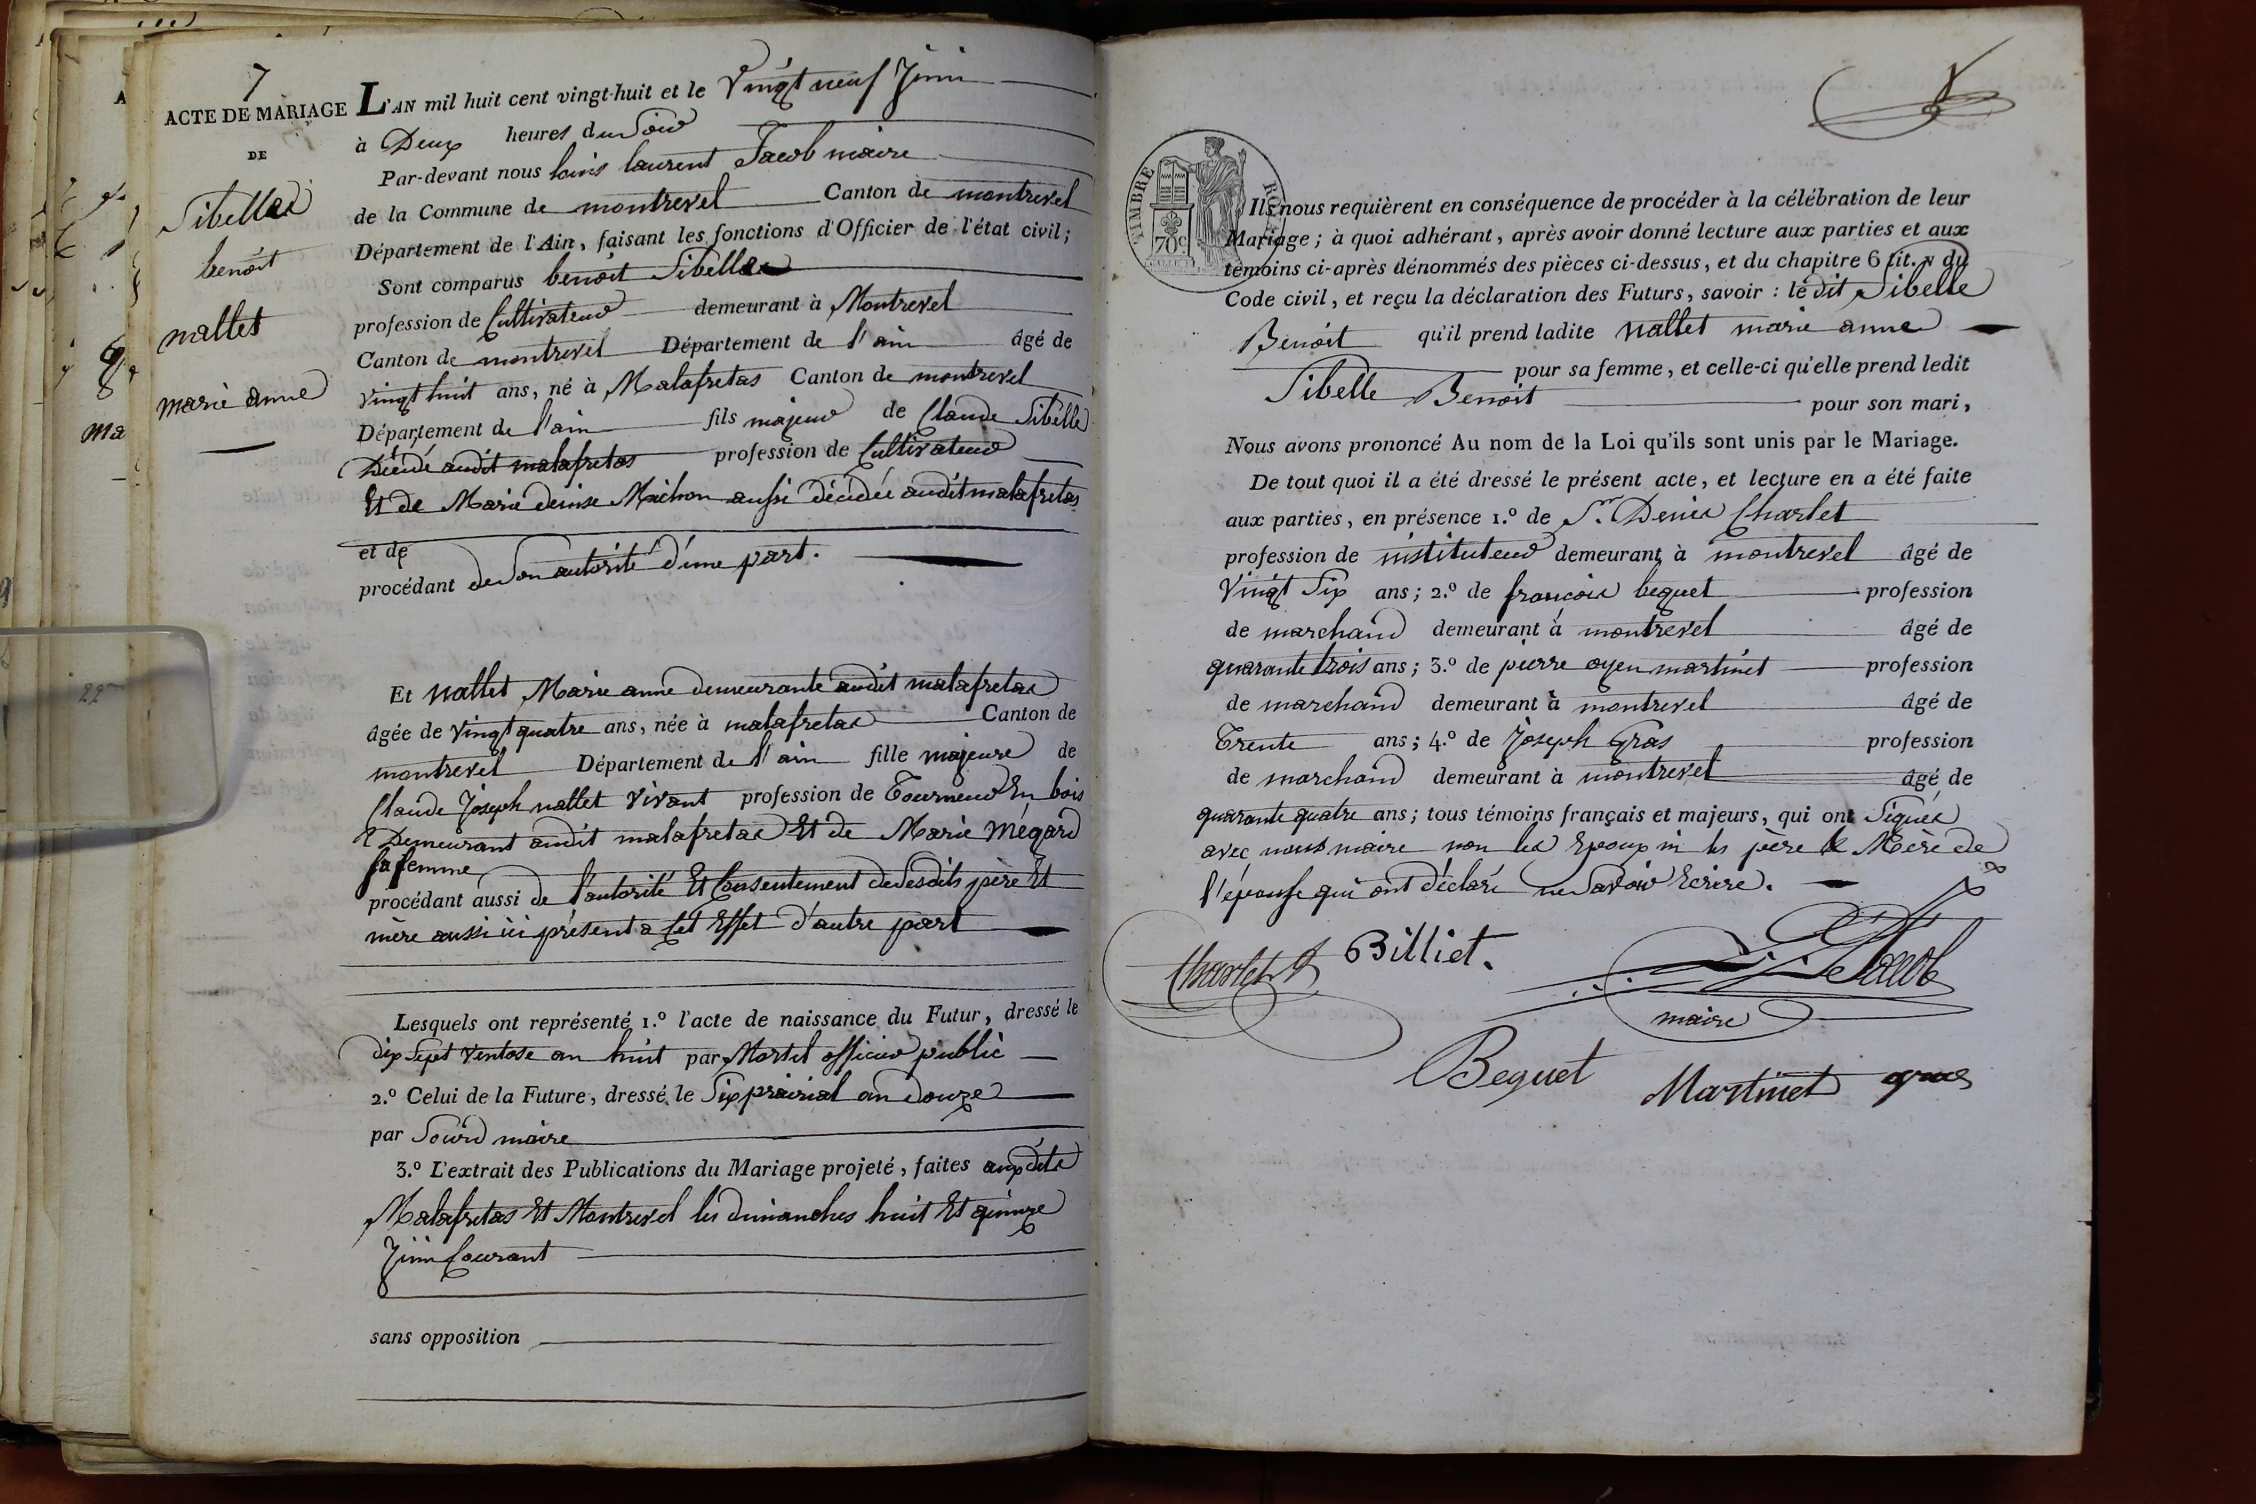 7
ACTE DE MARIAGE
DE
Sibelle
benoit
nallet
marie anne
L'AN mil huit cent vingt-huit et le Vingt neuf Juin
à Deux heures du Soir
Par-devant nous louis laurent Jacob maire
de la Commune de montrevel Canton de montrevel
Département de l'Ain, faisant les fonctions d'Officier de l'état civil;
Sont comparus benoit Sibelle
profession de Cultivateur demeurant à Montrevel
Canton de montrevel Département de l'ain âgé de
vingt huit ans, né à Malafretas Canton de montrevel
Département de l'ain fils majeur de Claude Sibelle
Décédé audit malafretas profession de Cultivateur
Et de Marie denise Michon aussi décédée audit malafretas
et de
procédant de Son autorité d'une part.
Et nallet Marie anne demeurante audit malafretas
âgée de vingt quatre ans, née à malafretas Canton de
montrevel Département de l'ain fille majeure de
Claude Joseph nallet vivant profession de Tourneur En bois
Demeurant audit malafretas Et de Marie Mégard
sa femme
procédant aussi de l'autorité Et Consentement de Sesdits père Et
mère aussi ici présent a Cet Effet d'autre part
Lesquels ont représenté 1.º l'acte de naissance du Futur, dressé le
dix Sept Ventose an huit par Martel officier public
2.º Celui de la Future, dressé le Six prairial an Douze
par Sourd maire
3.º L'extrait des Publications du Mariage projeté, faites auxdits
Malafretas Et Montrevel les dimanches huit Et quinze
Juin Courant
sans opposition
TIMBRE
70c
Ils nous requièrent en conséquence de procéder à la célébration de leur
Mariage; à quoi adhérant, après avoir donné lecture aux parties et aux
témoins ci-après dénommés des pièces ci-dessus, et du chapitre 6 tit. v du
Code civil, et reçu la déclaration des Futurs, savoir: le dit Sibelle
Benoit qu'il prend ladite nallet marie anne
pour sa femme, et celle-ci qu'elle prend ledit
Sibelle Benoit pour son mari,
Nous avons prononcé Au nom de la Loi qu'ils sont unis par le Mariage.
De tout quoi il a été dressé le présent acte, et lecture en a été faite
aux parties, en présence 1.º de Sr. Denis Charlet
profession de instituteur demeurant à montrevel âgé de
Vingt Six ans; 2.º de françois bequet profession
de marchand demeurant à montrevel âgé de
quarante trois ans; 3.º de pierre oyen martinet profession
de marchand demeurant à montrevel âgé de
Trente ans; 4.º de Joseph Gras profession
de marchand demeurant à montrevel âgé de
quarante quatre ans; tous témoins français et majeurs, qui ont Signés
avec nous maire non les Epoux ni les père & Mère de
l'épouse qui ont déclaré ne Savoir Ecrire.
Charlet Billiet. Jacob
maire
Bequet Martinet gras